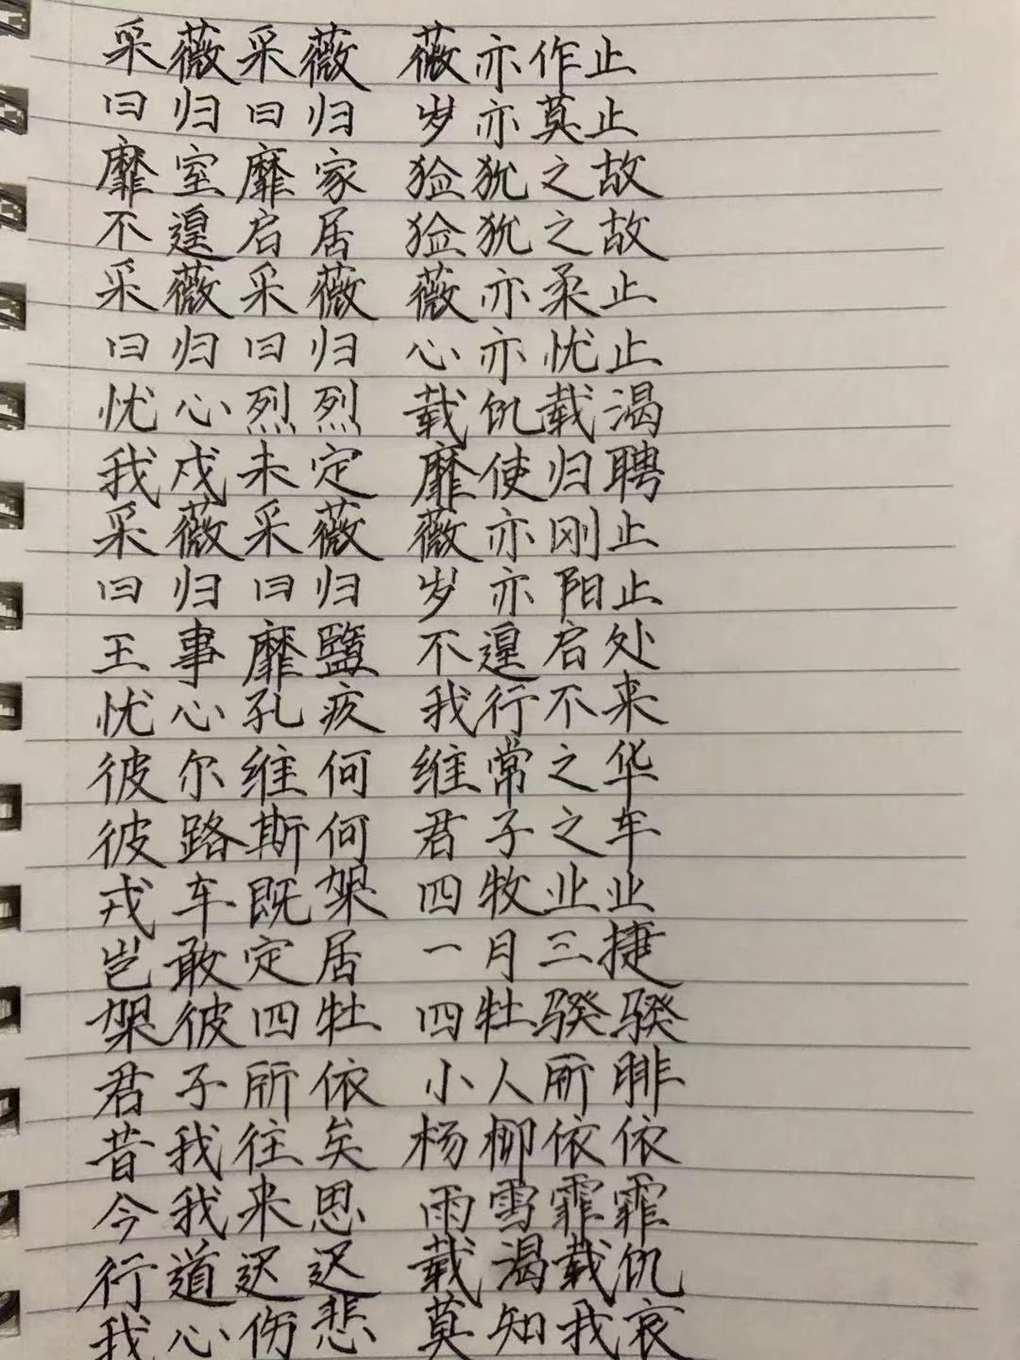 采薇采薇 薇亦作止
曰归曰归 岁亦莫止
靡室靡家 猃狁之故
不遑启居 猃狁之故
采薇采薇 薇亦柔止
曰归曰归 心亦忧止
忧心烈烈 载饥载渴
我戍未定 靡使归聘
采薇采薇 薇亦刚止
曰归曰归 岁亦阳止
王事靡盬 不遑启处
忧心孔疚 我行不来
彼尔维何 维常之华
彼路斯何 君子之车
戎车既架 四牧业业
岂敢定居 一月三捷
架彼四牡 四牡骙骙
君子所依 小人所腓
昔我往矣 杨柳依依
今我来思 雨雪霏霏
行道迟迟 载渴载饥
我心伤悲 莫知我哀